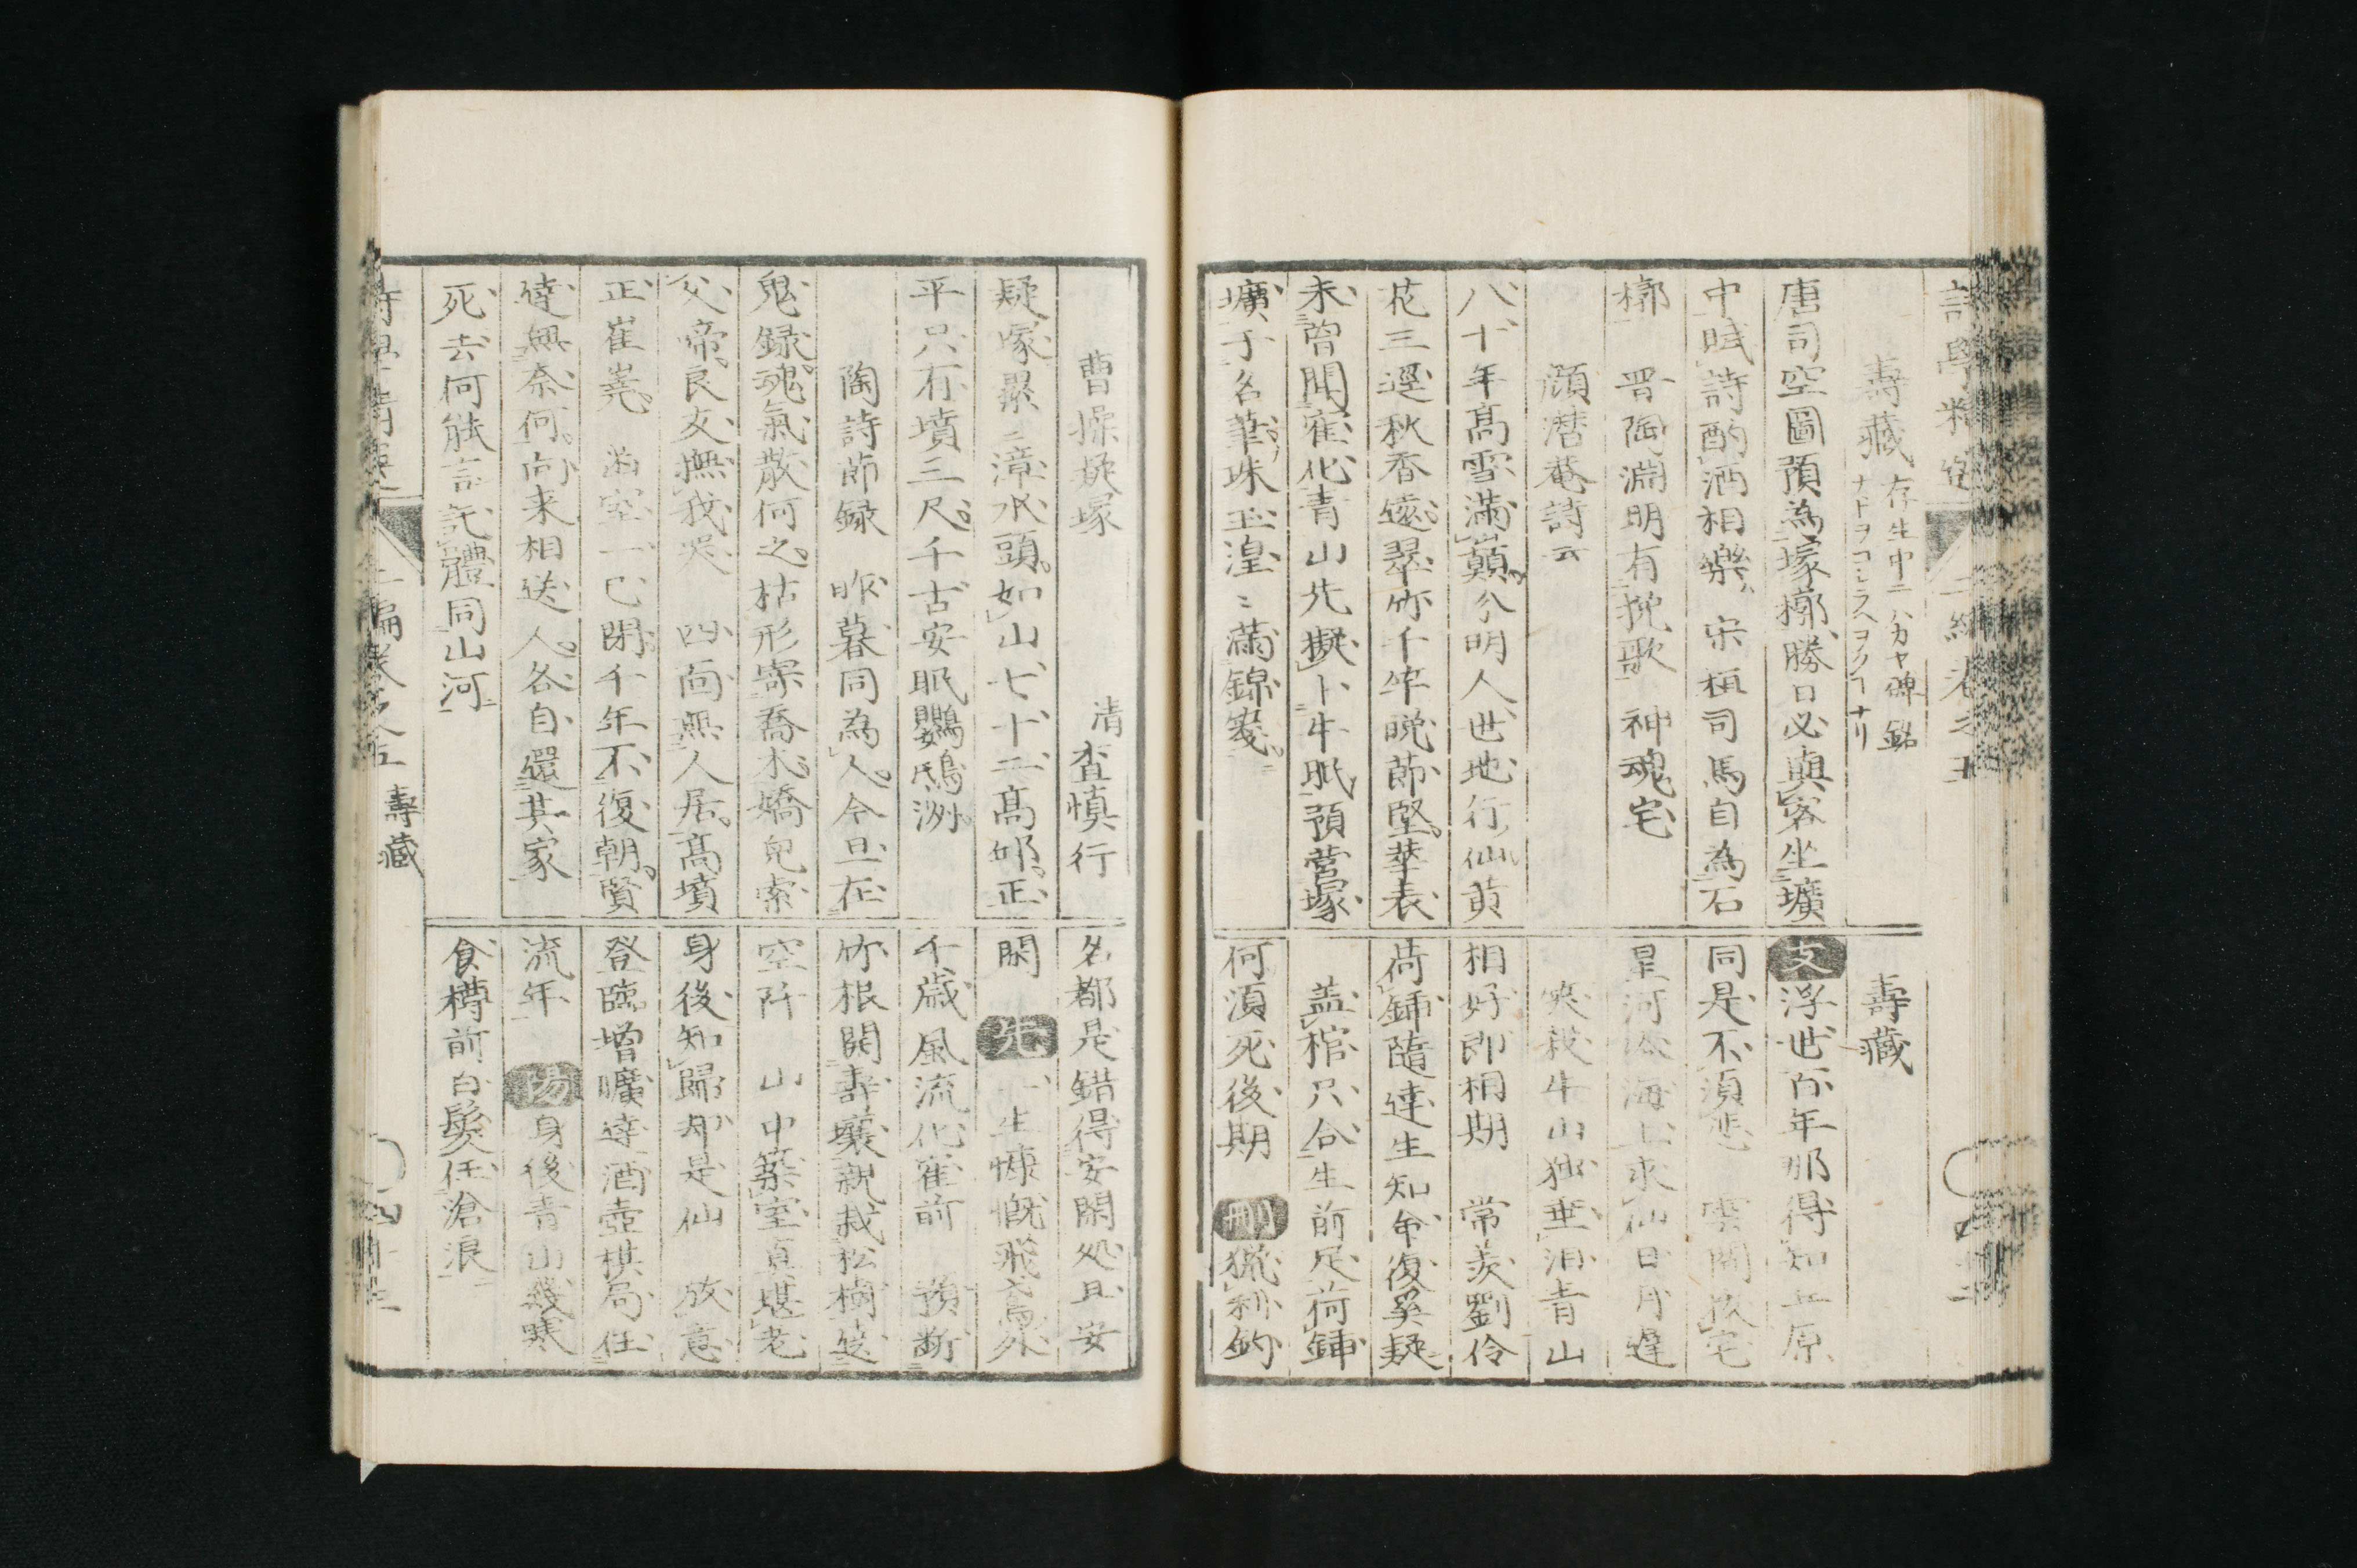 壽藏 存生中ニハカヤ碑銘
ナドヲコシラヘヲクコナリ
唐司空圖預為塚槨勝日必眞客坐壙
中賦詩酌酒相樂宋桓司馬自為石
槨 晋陶淵明有挽歌 神魂宅
顔潜菴詩云
八十年高雪滿巓分明人世地行仙黄
花三逕秋香遠翠竹千竿晚節堅華表
未曽聞寉化青山先擬卜牛眠預營塚
壙于名筆珠玉湟〻滿錦箋
壽藏
支 浮世百年那得知丘原
同是不須悲 雲關擬宅
星河 海上求仙日月遲
笑我牛山独垂泪青山
相好即相期 常羨劉伶
荷鍤隨達生知命復奚疑
盖棺只合生前足荷鍤
何須死後期 刪 獵利釣
曹操疑塚 清 査慎行
疑塚累〻漳水頭如山七十二高邱正
平只有墳三尺千古安眠鸚鵡洲
陶詩節録 昨暮同為人今旦在
鬼録魂氣散何之枯形寄喬木嬌兒索
父帝良友撫我哭 四面無人居高墳
正崔嶤 幽室一已閉千年不復朝賢
達無奈何向来相送人各自還其家
死去何能言託體同山河
名都是錯得安閑処且安
閑 先 一生慷慨飛鳶外
千歳風流化寉前 預断
竹根開壽壤親栽松樹送
空阡 山中築室真堪老
身後知歸卽是仙 放意
登臨増曠達酒壺棋局任
流年 陽 身後青山幾寒
食樽前白髮任滄浪
二編巻之五 壽藏